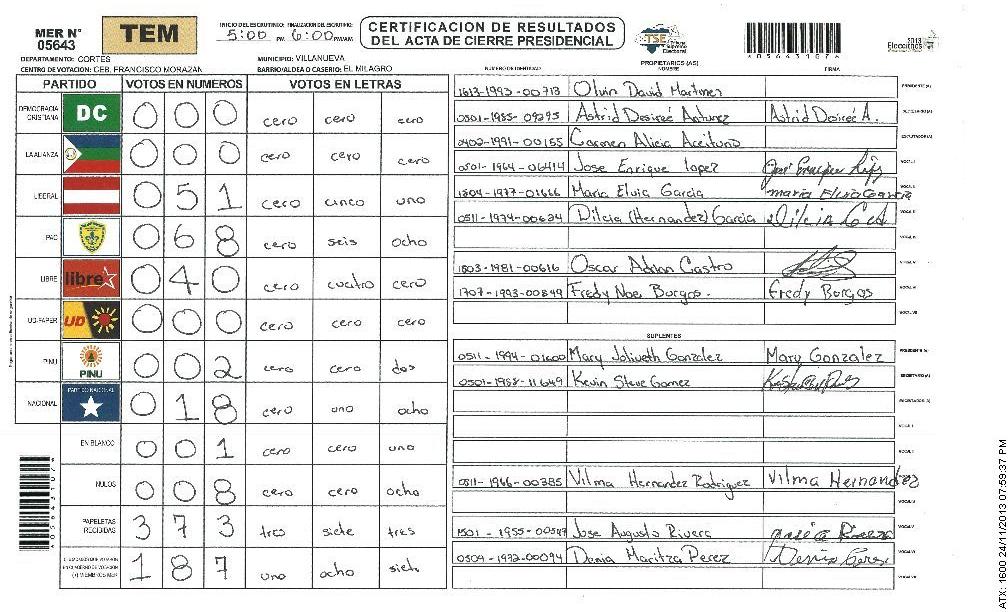 MER N° 05643
TEM
INICIO DEL ESCRUTINIO: FINALIZACION DEL ESCRUTINIO:
5:00 PM 6:00 PM/AM
CERTIFICACION DE RESULTADOS
DEL ACTA DE CIERRE PRESIDENCIAL
TSE
Tribunal Supremo Electoral
2013
Elecciones
DEPARTAMENTO: CORTES
MUNICIPIO: VILLANUEVA
CENTRO DE VOTACION: CEB. FRANCISCO MORAZAN
BARRIO/ALDEA O CASERIO: EL MILAGRO
PARTIDO VOTOS EN NUMEROS VOTOS EN LETRAS
DEMOCRACIA CRISTIANA DC 0 0 0 cero cero cero
LA ALIANZA 0 0 0 cero cero cero
LIBERAL 0 5 1 cero cinco uno
PAC 0 6 8 cero seis ocho
LIBRE libre 0 4 0 cero cuatro cero
UD-FAPER UD 0 0 0 cero cero cero
PINU PINU 0 0 2 cero cero dos
NACIONAL PARTIDO NACIONAL 0 1 8 cero uno ocho
EN BLANCO 0 0 1 cero cero uno
NULOS 0 0 8 cero cero ocho
PAPELETAS RECIBIDAS 3 7 3 tres siete tres
1 8 7 uno ocho siete
PROPIETARIOS (AS)
NUMERO DE IDENTIDAD NOMBRE FIRMA
1613-1993-00713 Olvin David Martinez PRESIDENTE (A)
0501-1985-09295 Astrid Desireé Antunez Astrid Desireé A. SECRETARIO (A)
0402-1991-00155 Carmen Alicia Aceituno ESCRUTADOR (A)
0501-1964-06414 Jose Enrique Lopez VOCAL I
1804-1977-01616 Maria Elvia Garcia maria Elvia Garcia VOCAL II
0511-1974-00624 Dilcia (Hernandez) Garcia VOCAL III
VOCAL IV
1803-1981-00616 Oscar Adrian Castro VOCAL V
1707-1993-00849 Fredy Noe Burgos. Fredy Burgos VOCAL VI
VOCAL VII
SUPLENTES
0511-1994-01600 Mary Joliveth Gonzalez Mary Gonzalez PRESIDENTE (A)
0501-1988-11649 Kevin Steve Gomez SECRETARIO (A)
ESCRUTADOR (A)
VOCAL I
VOCAL II
0511-1966-00385 Vilma Hernandez Rodriguez Vilma Hernandez VOCAL III
VOCAL IV
1501-1955-00547 Jose Augusto Rivera VOCAL V
0509-1972-00094 Dania Maritza Perez VOCAL VI
VOCAL VII
ATX: 1600.24/11/2013 07:59:37 PM